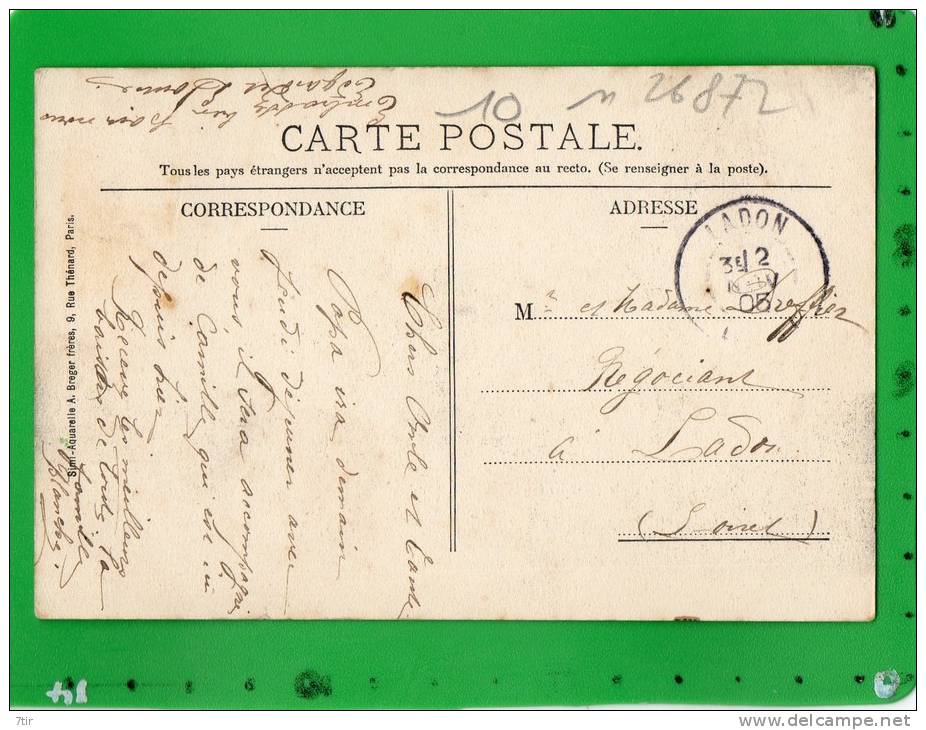 26872
10
Embrassez bien pour nous
CARTE POSTALE.
Tous les pays étrangers n'acceptent pas la correspondance au recto. (Se renseigner à la poste).
CORRESPONDANCE
Chers Oncle et Tante
Papa ira demain
Jeudi déjeuner avec
vous, il sera accompagné
de Camille qui est ici
depuis hier
Recevez les meilleurs
baisers de toute la
famille
Blanche.
Simi-Aquarelle A. Breger frères, 9, Rue Thénard, Paris.
ADRESSE
LADON
3E 12
05
Mr et Madame
Négociant
à Ladon
(Loiret)
14
7tir
www.delcampe.net